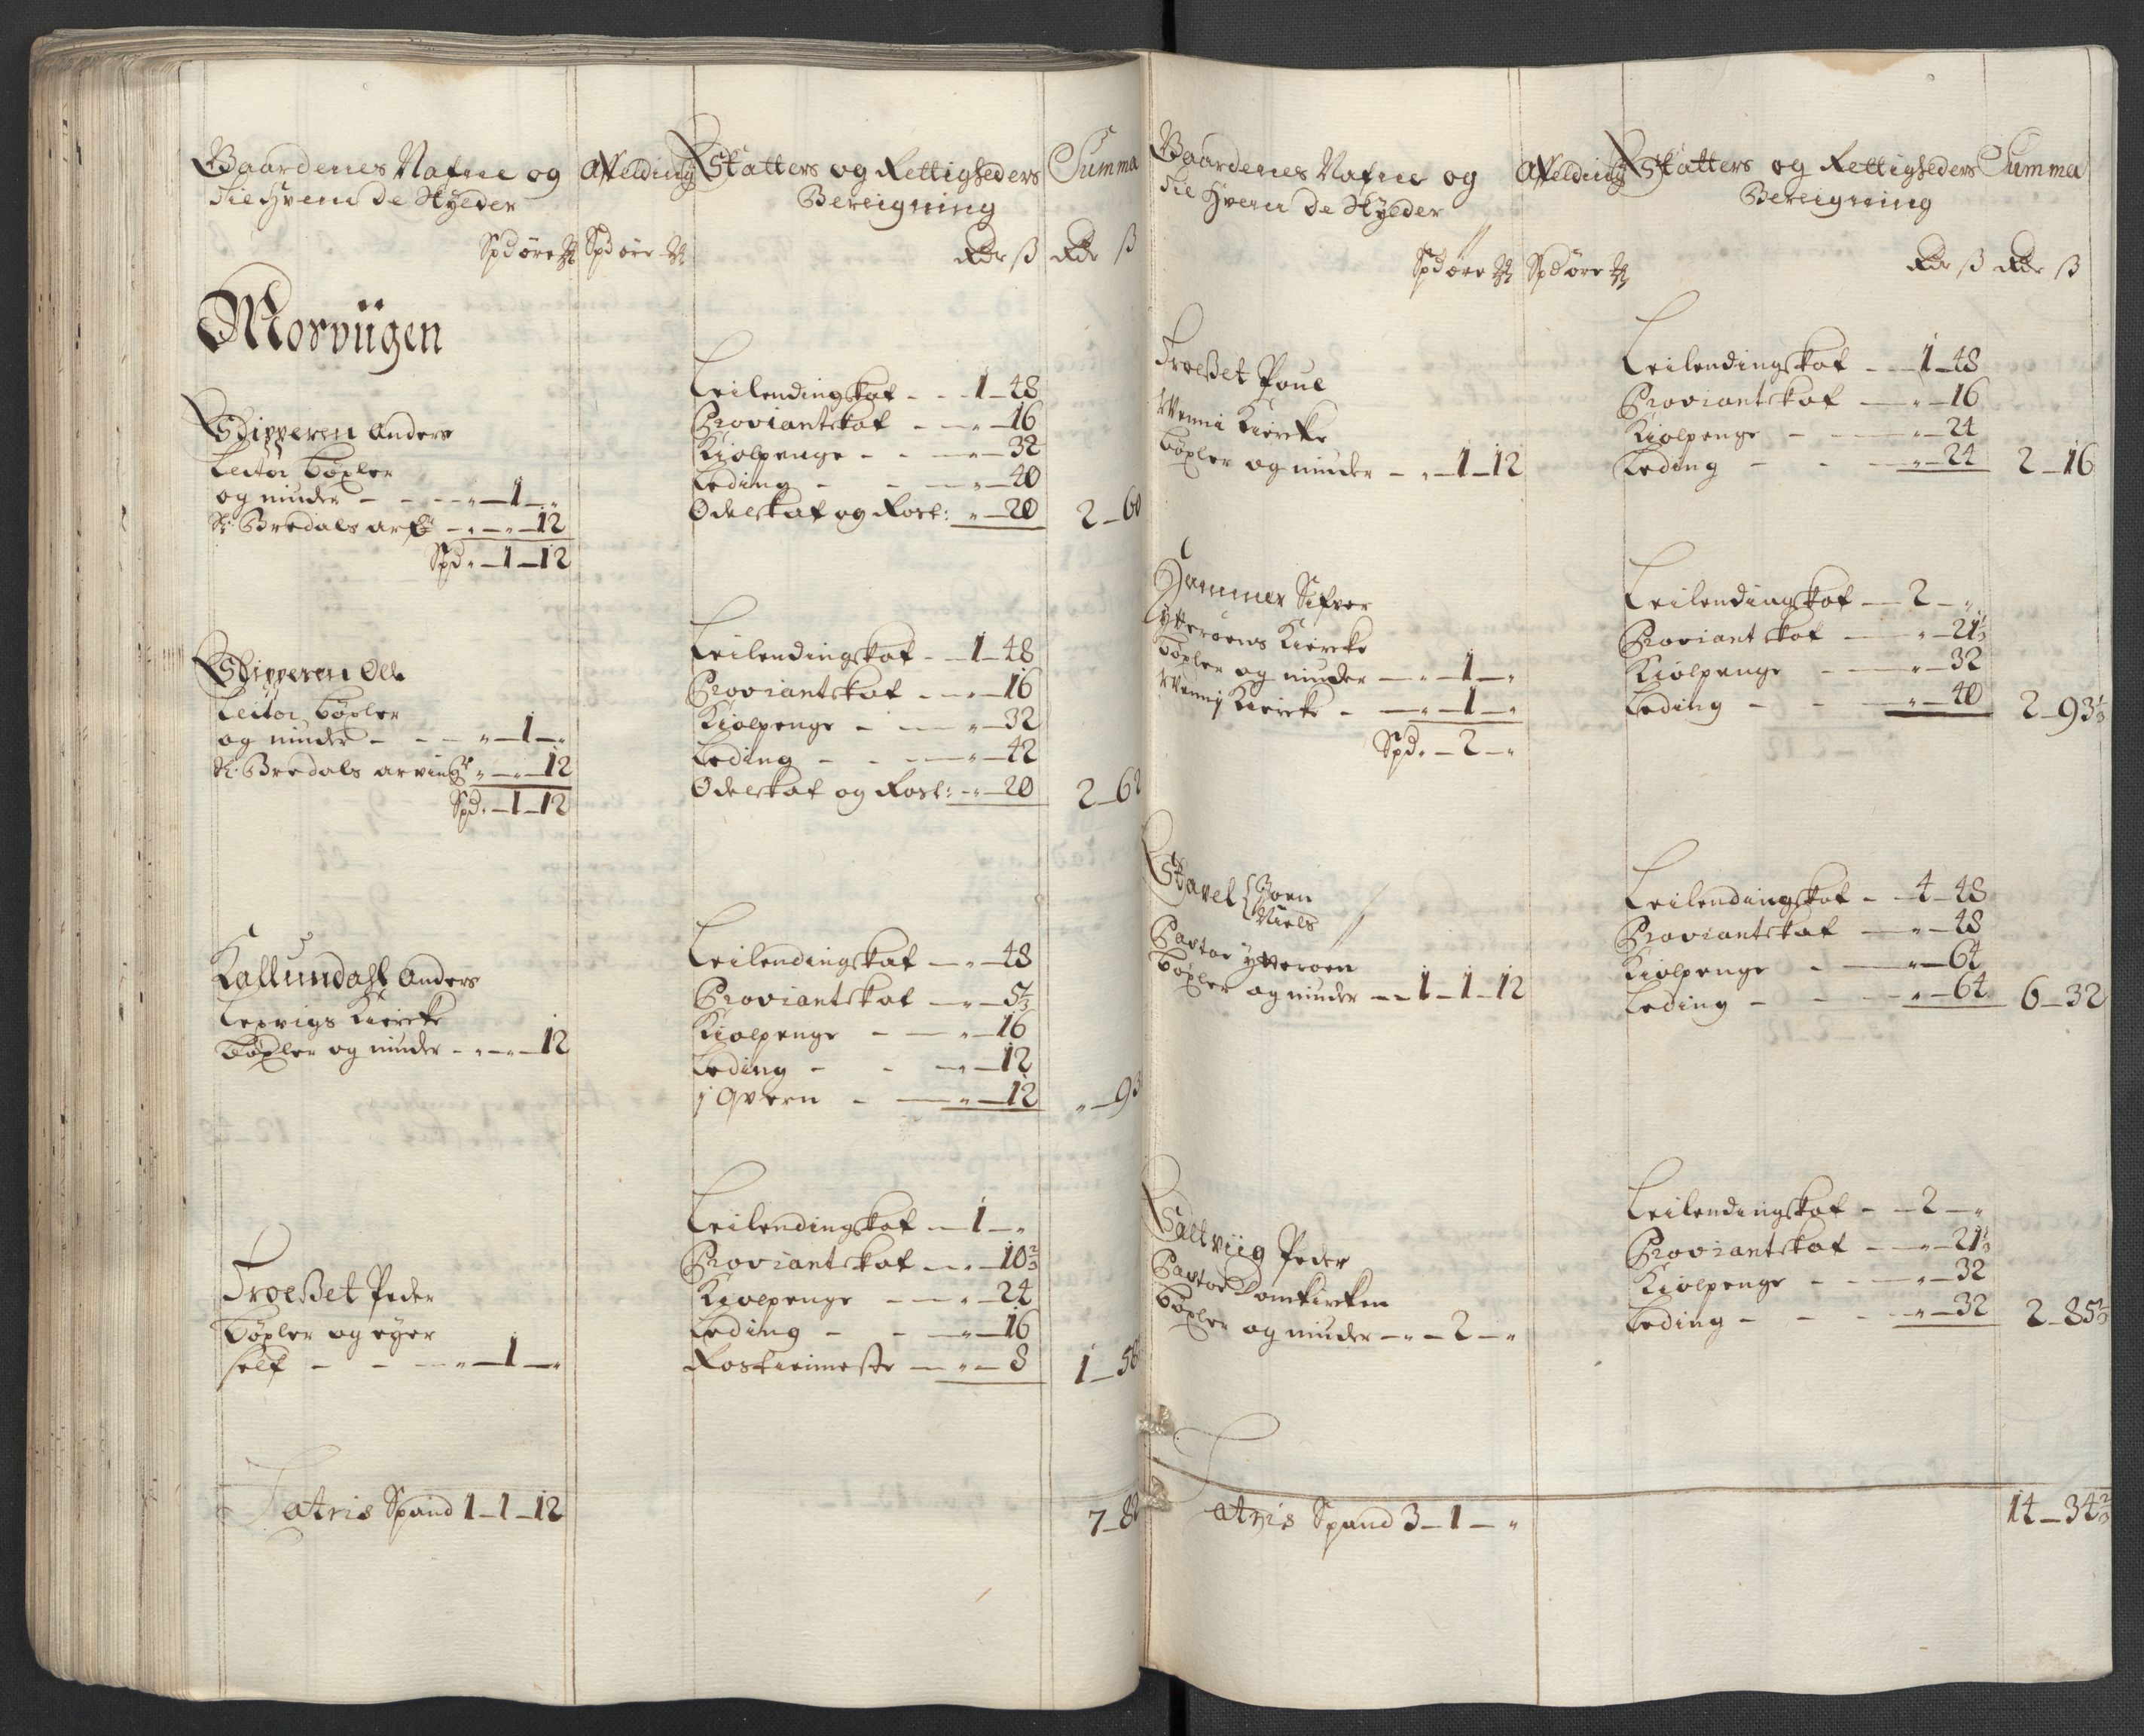 Gaardenes Nafne og
Til hvem de Skylder
Afelding
Skatters og Rettigheders
Bereigning
Summa
Spd øre Spd øre
Rdr ß Rdr ß
Morviigen
Schipperen Anders
Leitor böxler
og ninder - - - " - 1 - "
Sr: Bredals arf: - " - " - 12
Spd " - 1 - 12
Leilendingskat - - 1 - 48
Proviantskat - - " - 16
Kiølpenge - - " - 32
Leding - - " - 40
Odelskat og Rost: " - 20
2 - 60
Schipperen Ole
Leitor böxler
og ninder - - - " - 1 - "
Sr: Bredals arving " - " - 12
Spd " - 1 - 12
Leilendingskat - - 1 - 48
Proviantskat - - " - 16
Kiølpenge - - " - 32
Leding - - " - 42
Odelskat og Rost: - " - 20
2 - 62
Kallundahl Anders
Lexvigs Kiercke
böxler og ninder - " - " - 12
Leilendingskat - " - 48
Proviantskat - " - 5 1/3
Kiølpenge - - " - 16
Leding - - " - 12
j Qvern - - " - 12
" - 93
Troeßet Peder
böxler og eyer
self - - - " - 1 - "
Leilendingskat - 1 - "
Proviantskat - " - 10 2/3
Kiølpenge - - " - 24
Leding - - " - 16
Rostieniste - " - 8
1 - 58
Latris Spand 1 - 1 - 12
7 - 82
Gaardenes Nafne og
Til hvem de Skylder
Afelding
Skatters og Rettigheders
Bereigning
Summa
Spd øre Spd øre
Rdr ß Rdr ß
Troeßet Poul
Wenni Kiercke
böxler og ninder - " - 1 - 12
Leilendingskat - - 1 - 48
Proviantskat - " - 16
Kiølpenge - - " - 24
Leding - - " - 24
2 - 16
Hammer Sifver
Ytterøens Kiercke
böxler og ninder - " - 1 - "
Wennj Kiercke - - " - 1 - "
Spd " - 2 - "
Leilendingskat - 2 - "
Proviantskat - " - 21 1/3
Kiølpenge - - " - 32
Leding - - " - 40
2 - 93 1/3
Stavel { Joen
Niels
Pastor Ytterøen
böxler og ninder - - 1 - 1 - 12
Leilendingskat - 4 - 48
Proviantskat - " - 48
Kiølpenge - - " - 64
Leding - - " - 64
6 - 32
Saltviig Peder
Pastor Domkircken
böxler og ninder - " - 2 - "
Leilendingskat - - 2 - "
Proviantskat - " - 21 1/3
Kiølpenge - - " - 32
Leding - - - " - 32
2 - 85 1/3
Latris Spand 3 - 1 - "
14 - 34 2/3